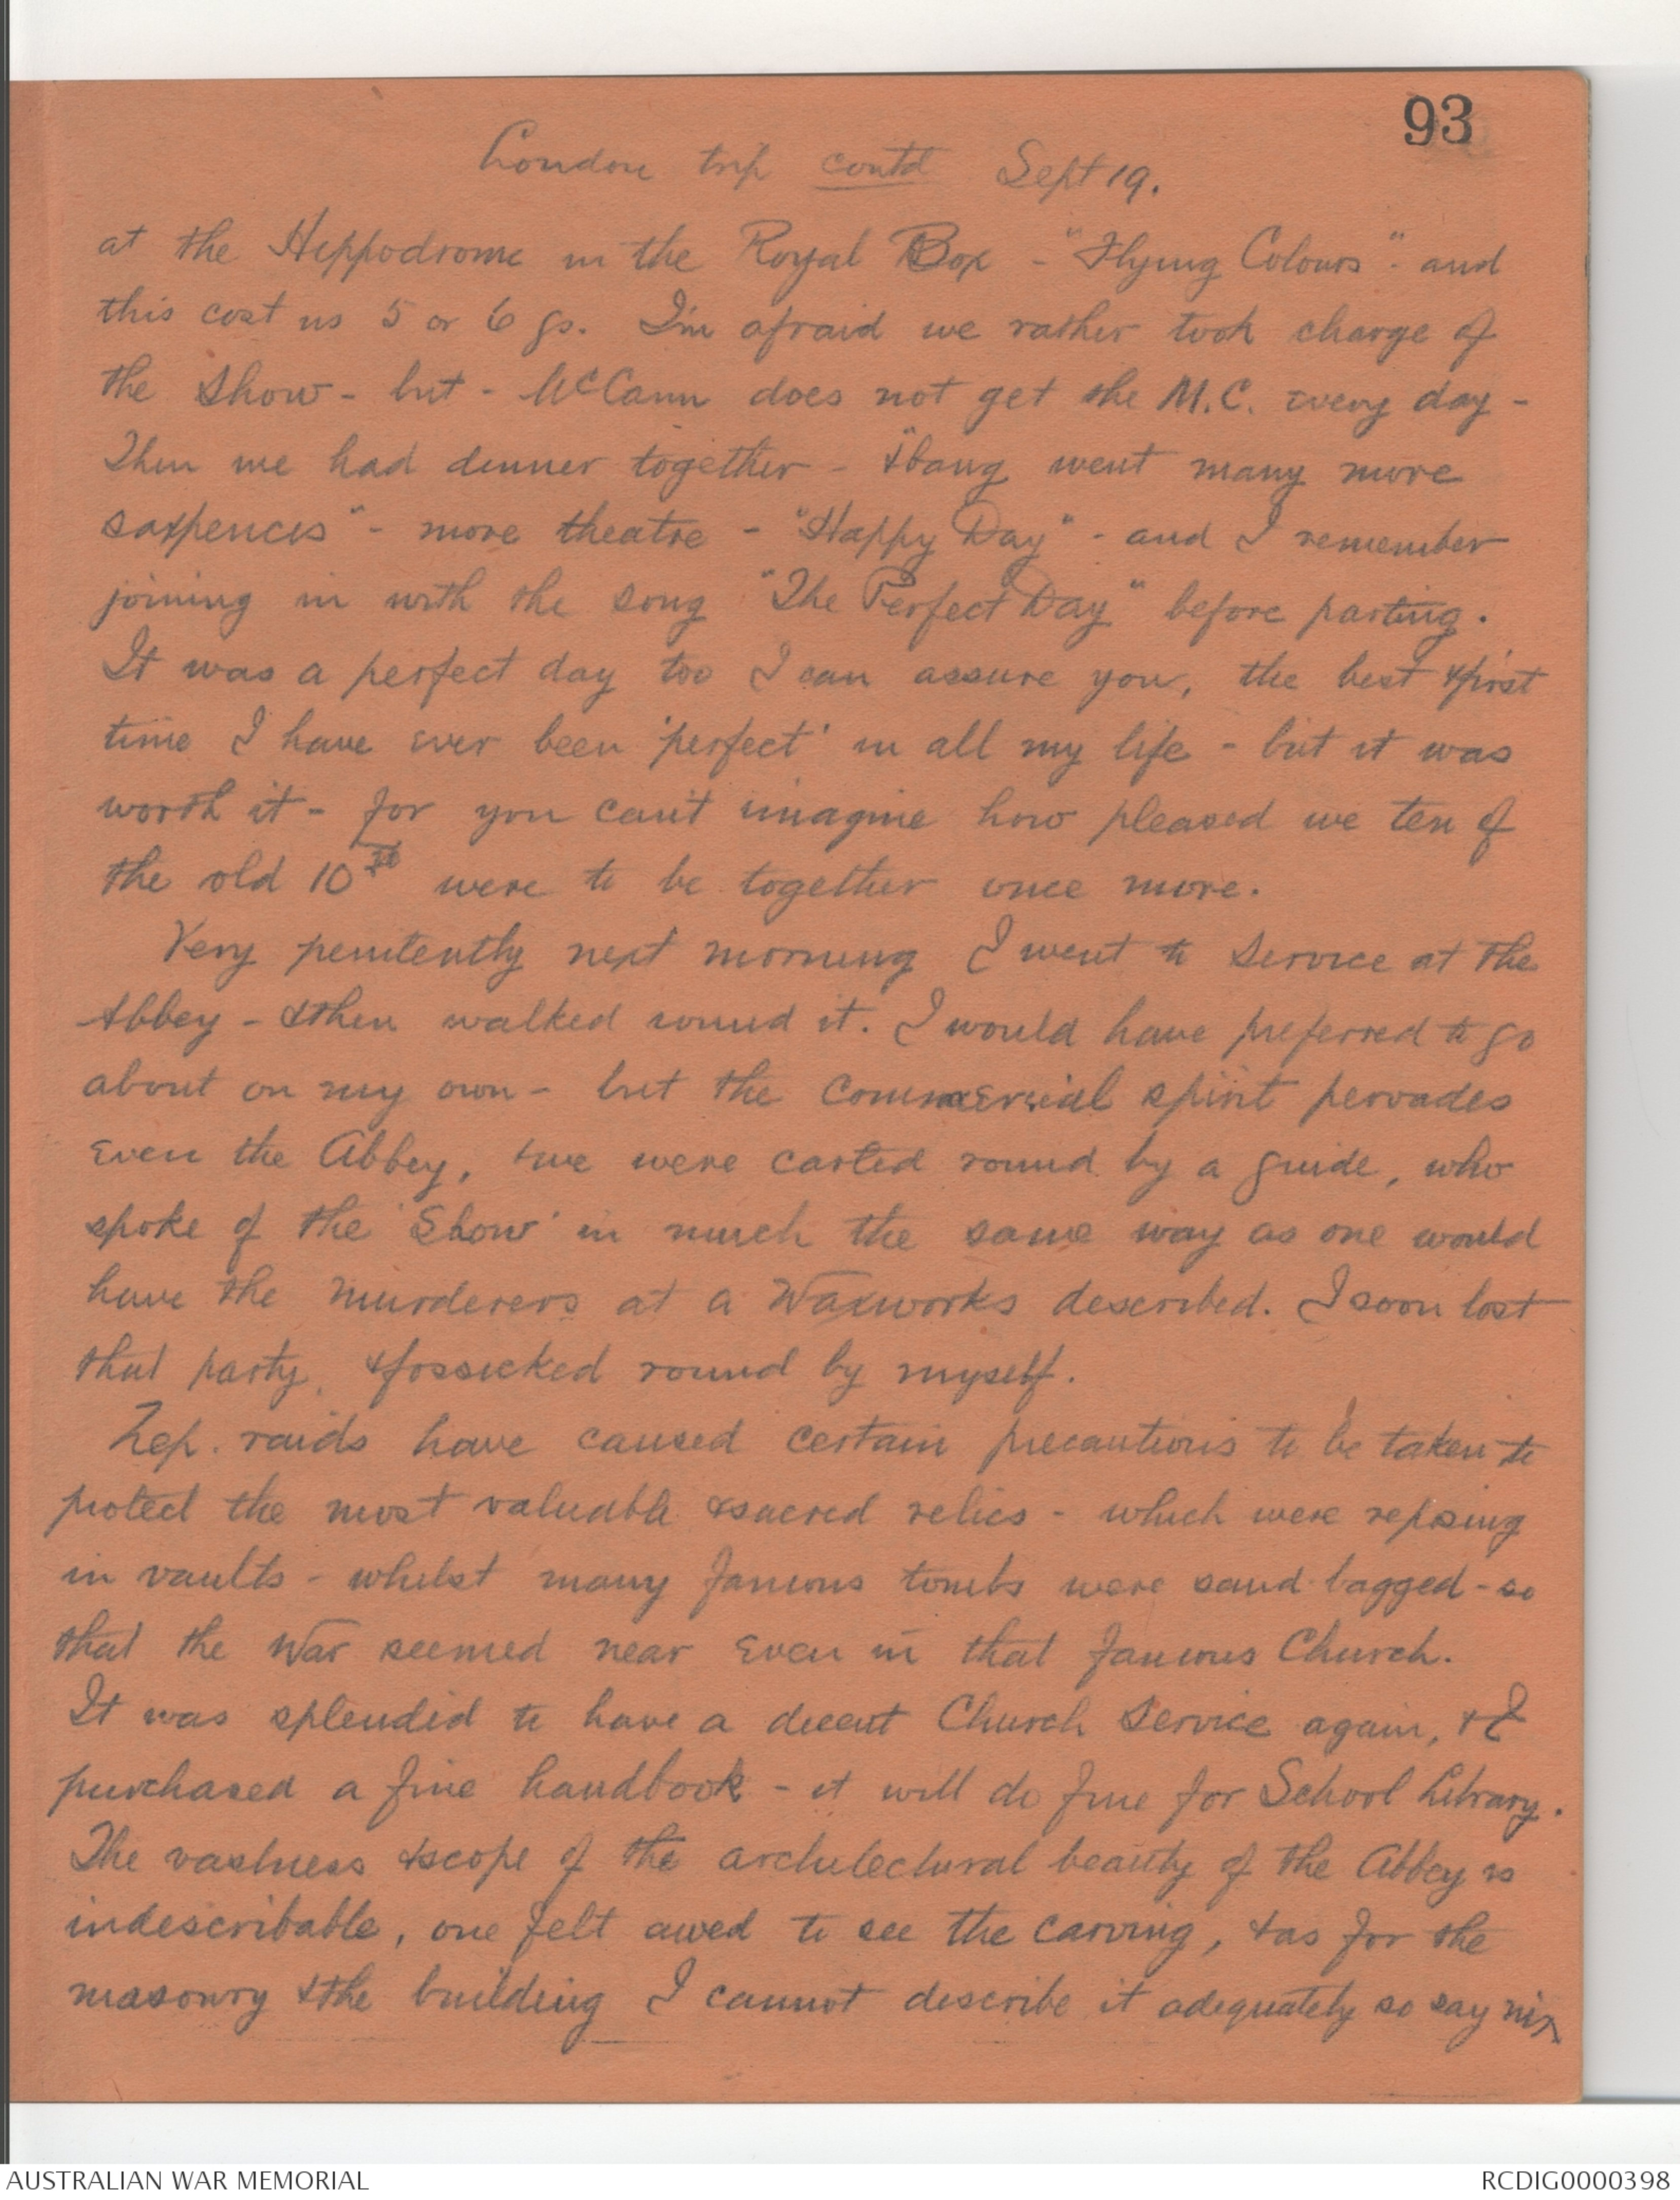 93
London trip contd Sept 19.
at the Hippodrome in the Royal Box - "Flying Colours" - and
this cost us 5 or 6 gs. I'm afraid we rather took charge of
the show - but - McCann does not get the M.C. every day -
Then we had dinner together - "&bang went many more
saxpences" - more theatre - "Happy Day" - and I remember
joining in with the song "The Perfect Day" before parting.
It was a perfect day too I can assure you, the best & first
time I have ever been 'perfect' in all my life - but it was
worth it - for you can't imagine how pleased we ten of
the old 10th were to be together once more.
Very penitently next morning I went to Service at the
Abbey - & then walked round it. I would have preferred to go
about on my own - but the commercial spirit pervades
even the Abbey, & we were carted round by a guide, who
spoke of the 'Show' in much the same way as one would
have the murderers at a Waxworks described. I soon lost
that party, & fossicked round by myself.
Zep. raids have caused certain precautions to be taken to
protect the most valuable & sacred relics - which were reposing
in vaults - whilst many famous tombs were sand-bagged - so
that the War seemed near even in that famous Church.
It was splendid to have a decent Church Service again, & I
purchased a fine handbook - it will do fine for School Library.
The vastness & scope of the architectural beauty of the Abbey is
indescribable, one felt awed to see the carving, & as for the
masonry & the building I cannot describe it adequately so say nix
AUSTRALIAN WAR MEMORIAL
RCDIG0000398